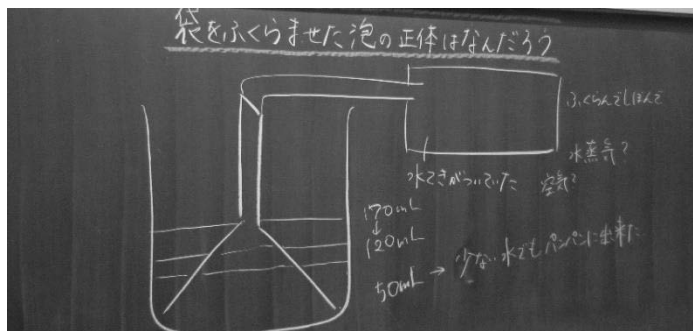 袋をふくらませた泡の正体はなんだろう
ふくらんでしぼんで
水蒸気?
空気?
水てきがついていた
170mL
↓
120mL
50mL → 少ない水でもパンパンに出来た